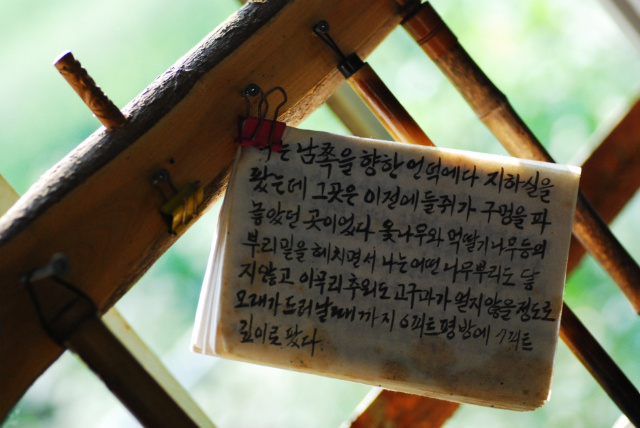 나는 남쪽을 향한 언덕에다 지하실을
팠는데 그곳은 이전에 들쥐가 구멍을 파
놓았던 곳이었다 옻나무와 먹딸기나무등의
뿌리밑을 헤치면서 나는 어떤 나무뿌리도 닿
지않고 아무리 추워도 고구마가 얼지않을정도로
모래가 드러날때까지 6피트평방에 7피트
깊이로 팠다.